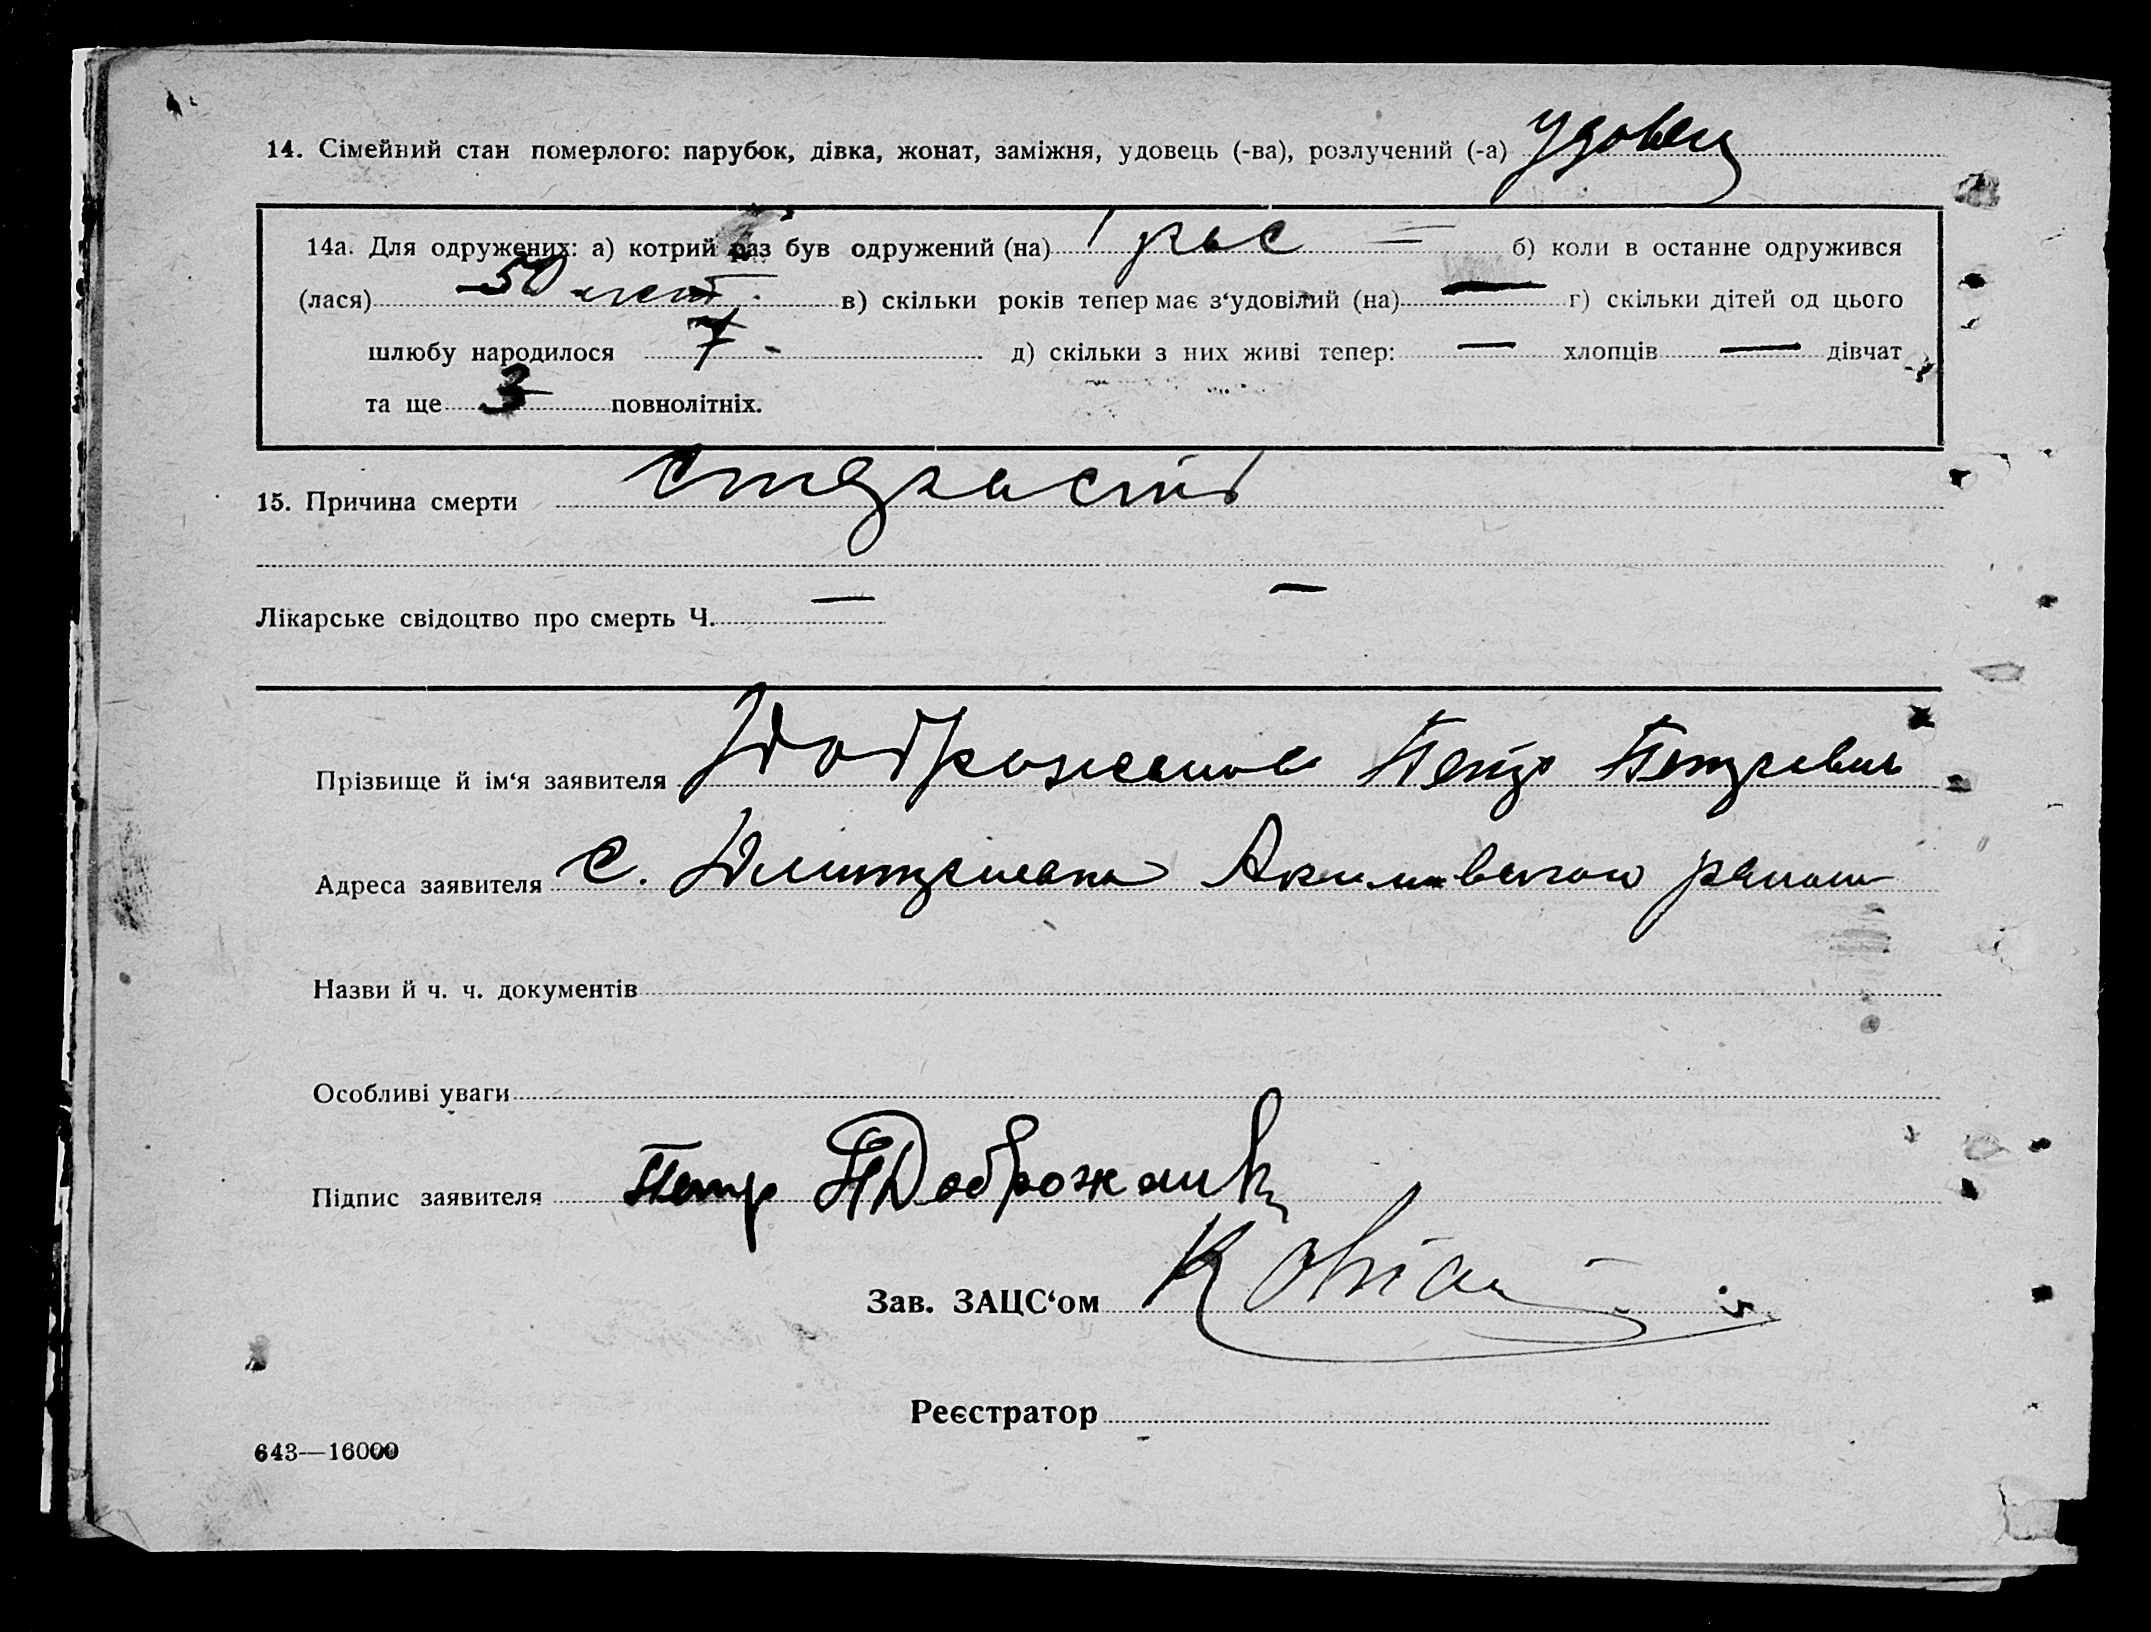 14. Сімейний стан померлого: парубок, дівка, жонат, заміжня, удовець (-ва), розлучений (-а) удовец
14а. Для одружених: а) котрий раз був одружений (на) 1 рас = б) коли в останнє одружився
(лася) 50 лет. в) скільки років тепер має з‘удовілий (на) — г) скільки дітей од цього
шлюбу народилося 7 - д) скільки з них живі тепер: — хлопців — дівчат
та ще 3 повнолітніх.
15. Причина смерти старасть
Лікарське свідоцтво про смерть Ч. — —
Прізвище й ім‘я заявителя Петр Петрович
Адреса заявителя с. Акимовского район
Назви й ч. ч. документів
Особливі уваги
Підпис заявителя Петр П Доброжан
Зав. ЗАЦС‘ом
Реєстратор
643—16000